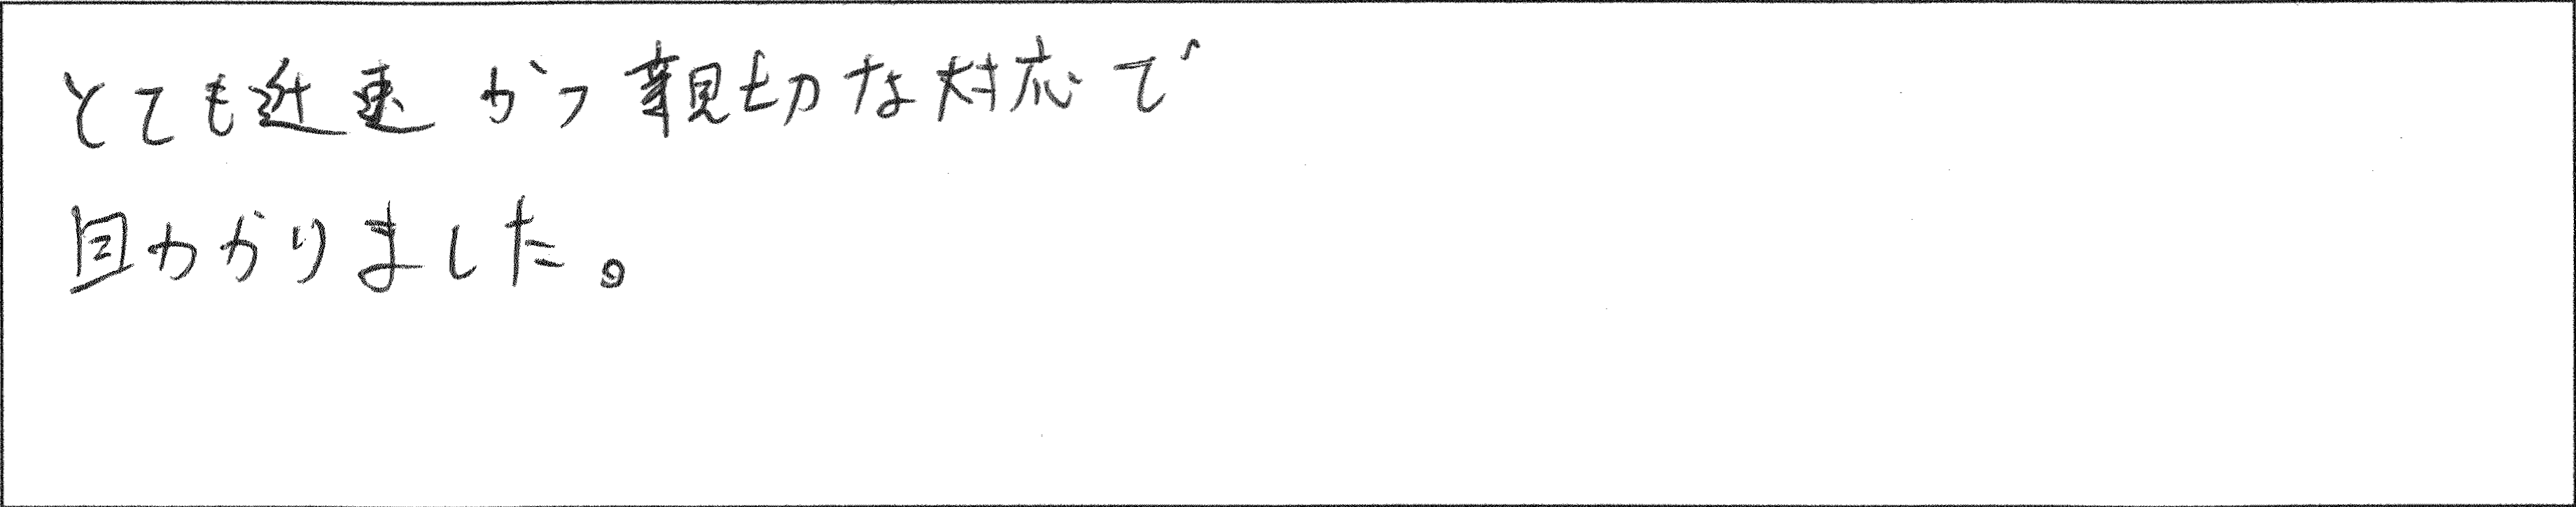 とても迅速かつ親切な対応で
助かりました。